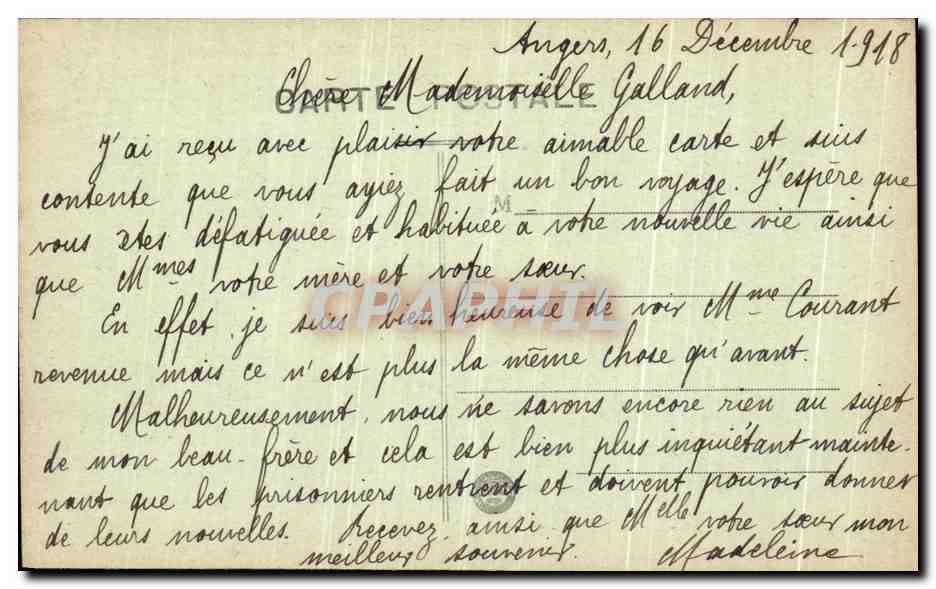 Angers, 16 Décembre 1918
CARTE POSTALE
Chère Mademoiselle Galland,
J'ai reçu avec plaisir votre aimable carte et suis
contente que vous ayiez fait un bon voyage. J'espère que
M
vous êtes défatiguée et habituée à votre nouvelle vie ainsi
que Mmes votre mère et votre sœur.
CPAPHIL
En effet, je suis bien heureuse de voir Mme Courant
revenue mais ce n'est plus la même chose qu'avant.
Malheureusement, nous ne savons encore rien au sujet
de mon beau-frère et cela est bien plus inquiétant mainte-
nant que les prisonniers rentrent et doivent pouvoir donner
de leurs nouvelles. Recevez, ainsi que Melle votre sœur mon
meilleur souvenir. Madeleine